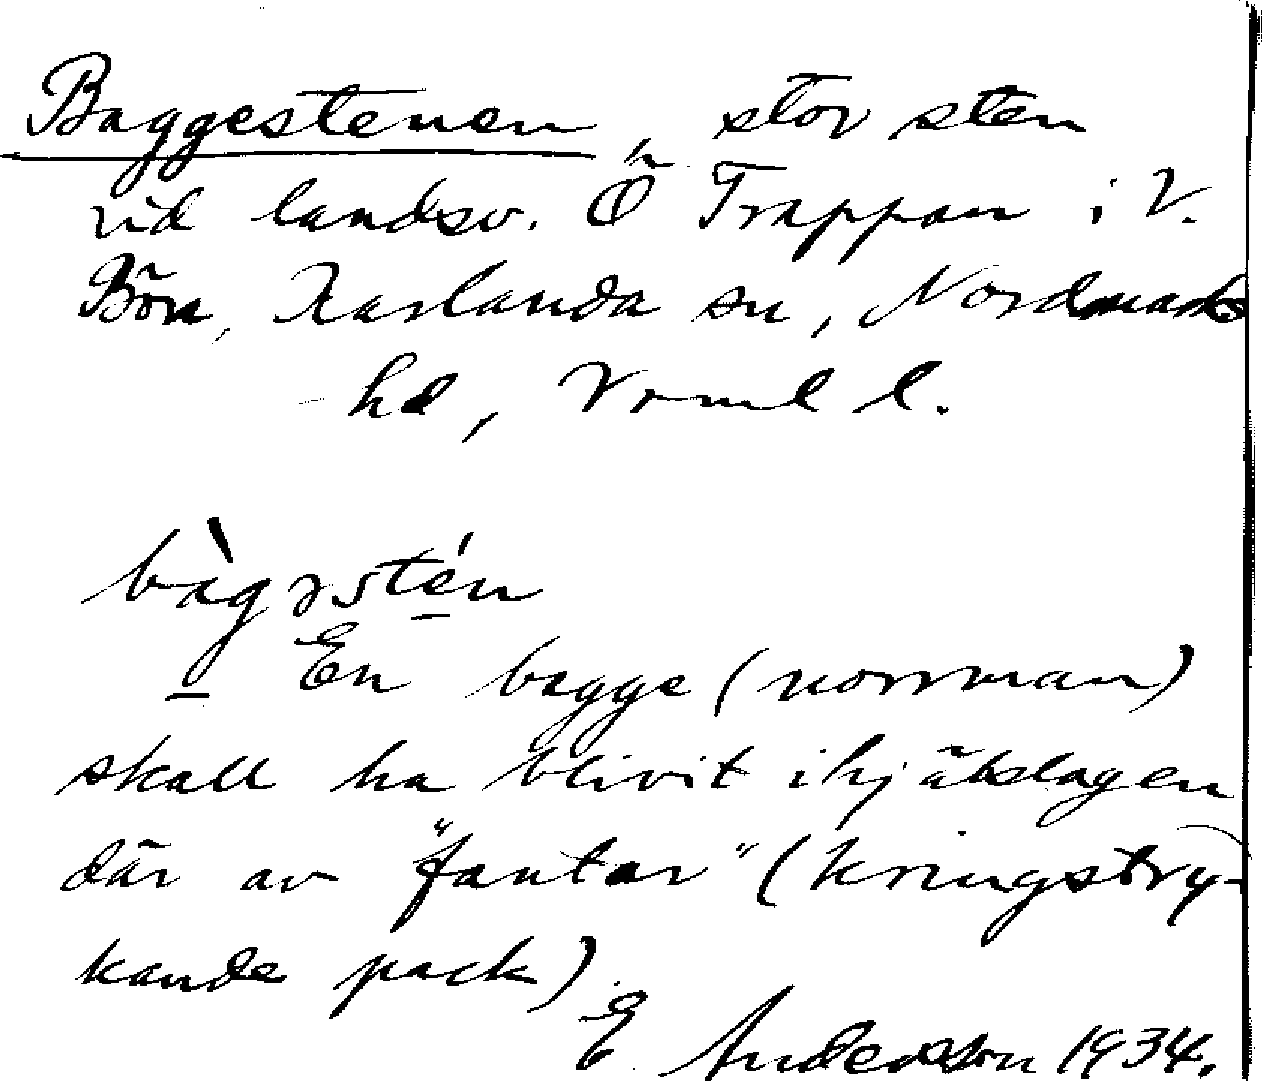 Baggestenen, stor sten
vid landsv. Ö Trappan i V.
Bön, Karlanda sn, Nordmarks
hd, Vrml l.
bàgɂstén
En bagge (norrman)
skall ha blivit ihjälslagen
där av "fantar" (kringstry-
kande pack).
E Anderson 1934.